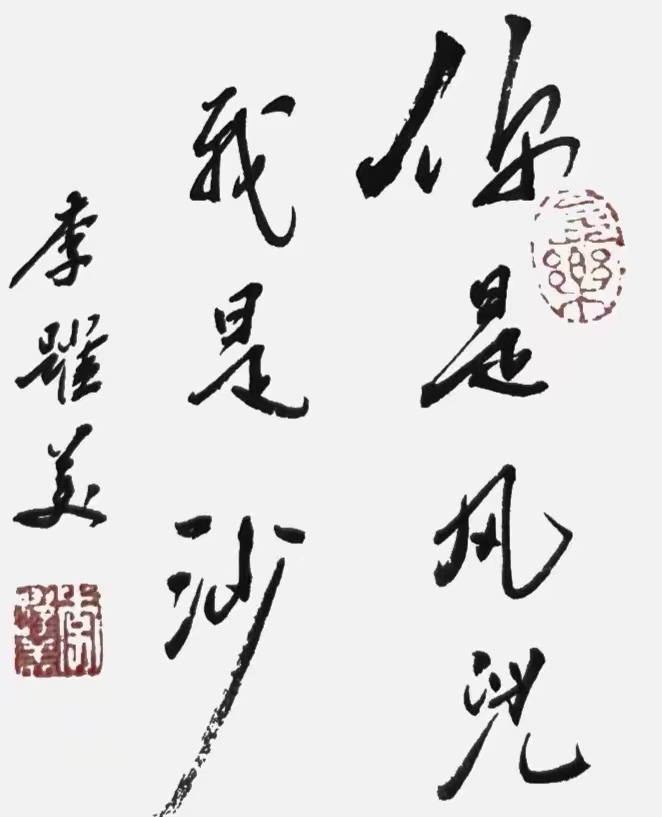 你是风兒
我是沙
李躍美